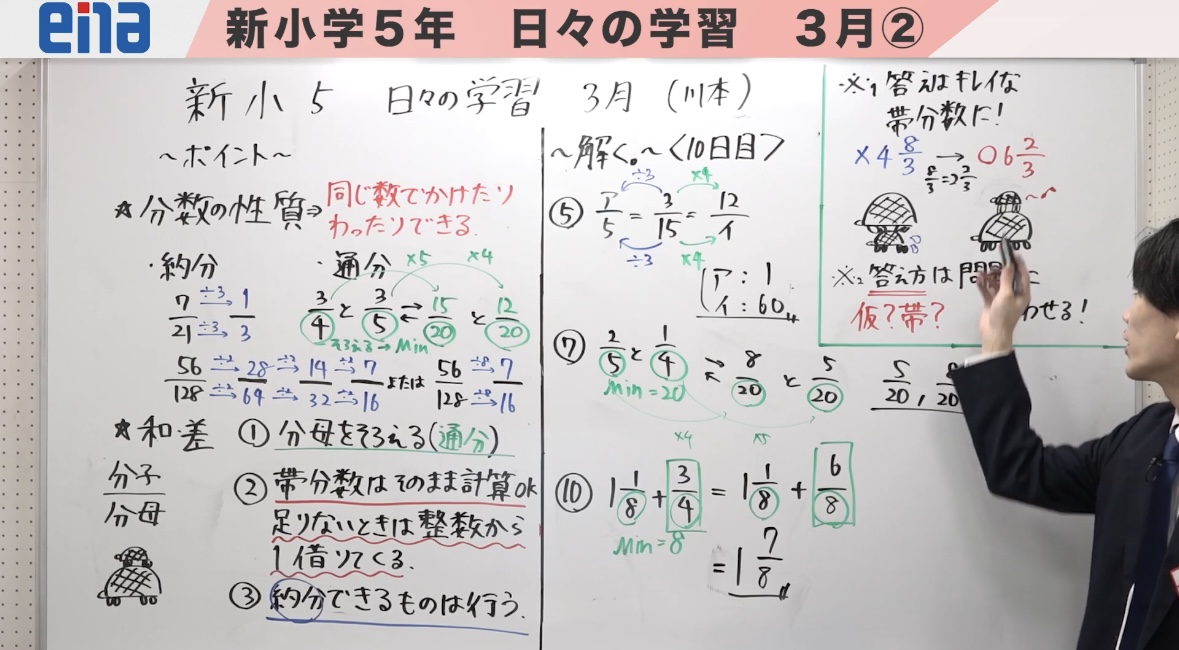 ena
新小学5年 日々の学習 3月②
新小5 日々の学習 3月 (川本)
~ポイント~
★分数の性質⇒同じ数でかけたり
わったりできる.
・約分
7/21 ÷3→ ÷3→ 1/3
56/128 ÷2→ ÷2→ 28/64 ÷2→ ÷2→ 14/32 ÷2→ ÷2→ 7/16 または 56/128 ÷8→ ÷8→ 7/16
・通分 ×5 ×4
3/4 と 3/5 ⇄ 15/20 と 12/20
そろえる→Min
★和・差 ① 分母をそろえる(通分)
分子
分母
② 帯分数はそのまま計算OK
足りないときは整数から
1借りてくる.
③ 約分できるものは行う.
~解く。~<10日目>
÷3 ×4
⑤ ア/5 = 3/15 = 12/イ
÷3 ×4
ア:1
イ:60
⑦ 2/5 と 1/4 ⇄ 8/20 と 5/20
5/20, 8/20
Min=20
×4 ×5
⑩ 1 1/8 + 3/4 = 1 1/8 + 6/8
Min=8
= 1 7/8
※1 答えはキレイな
帯分数に!
×4 8/3 → ○6 2/3
8/3 ⇒ 2 2/3
※2 答え方は問題に
仮?帯? わせる!